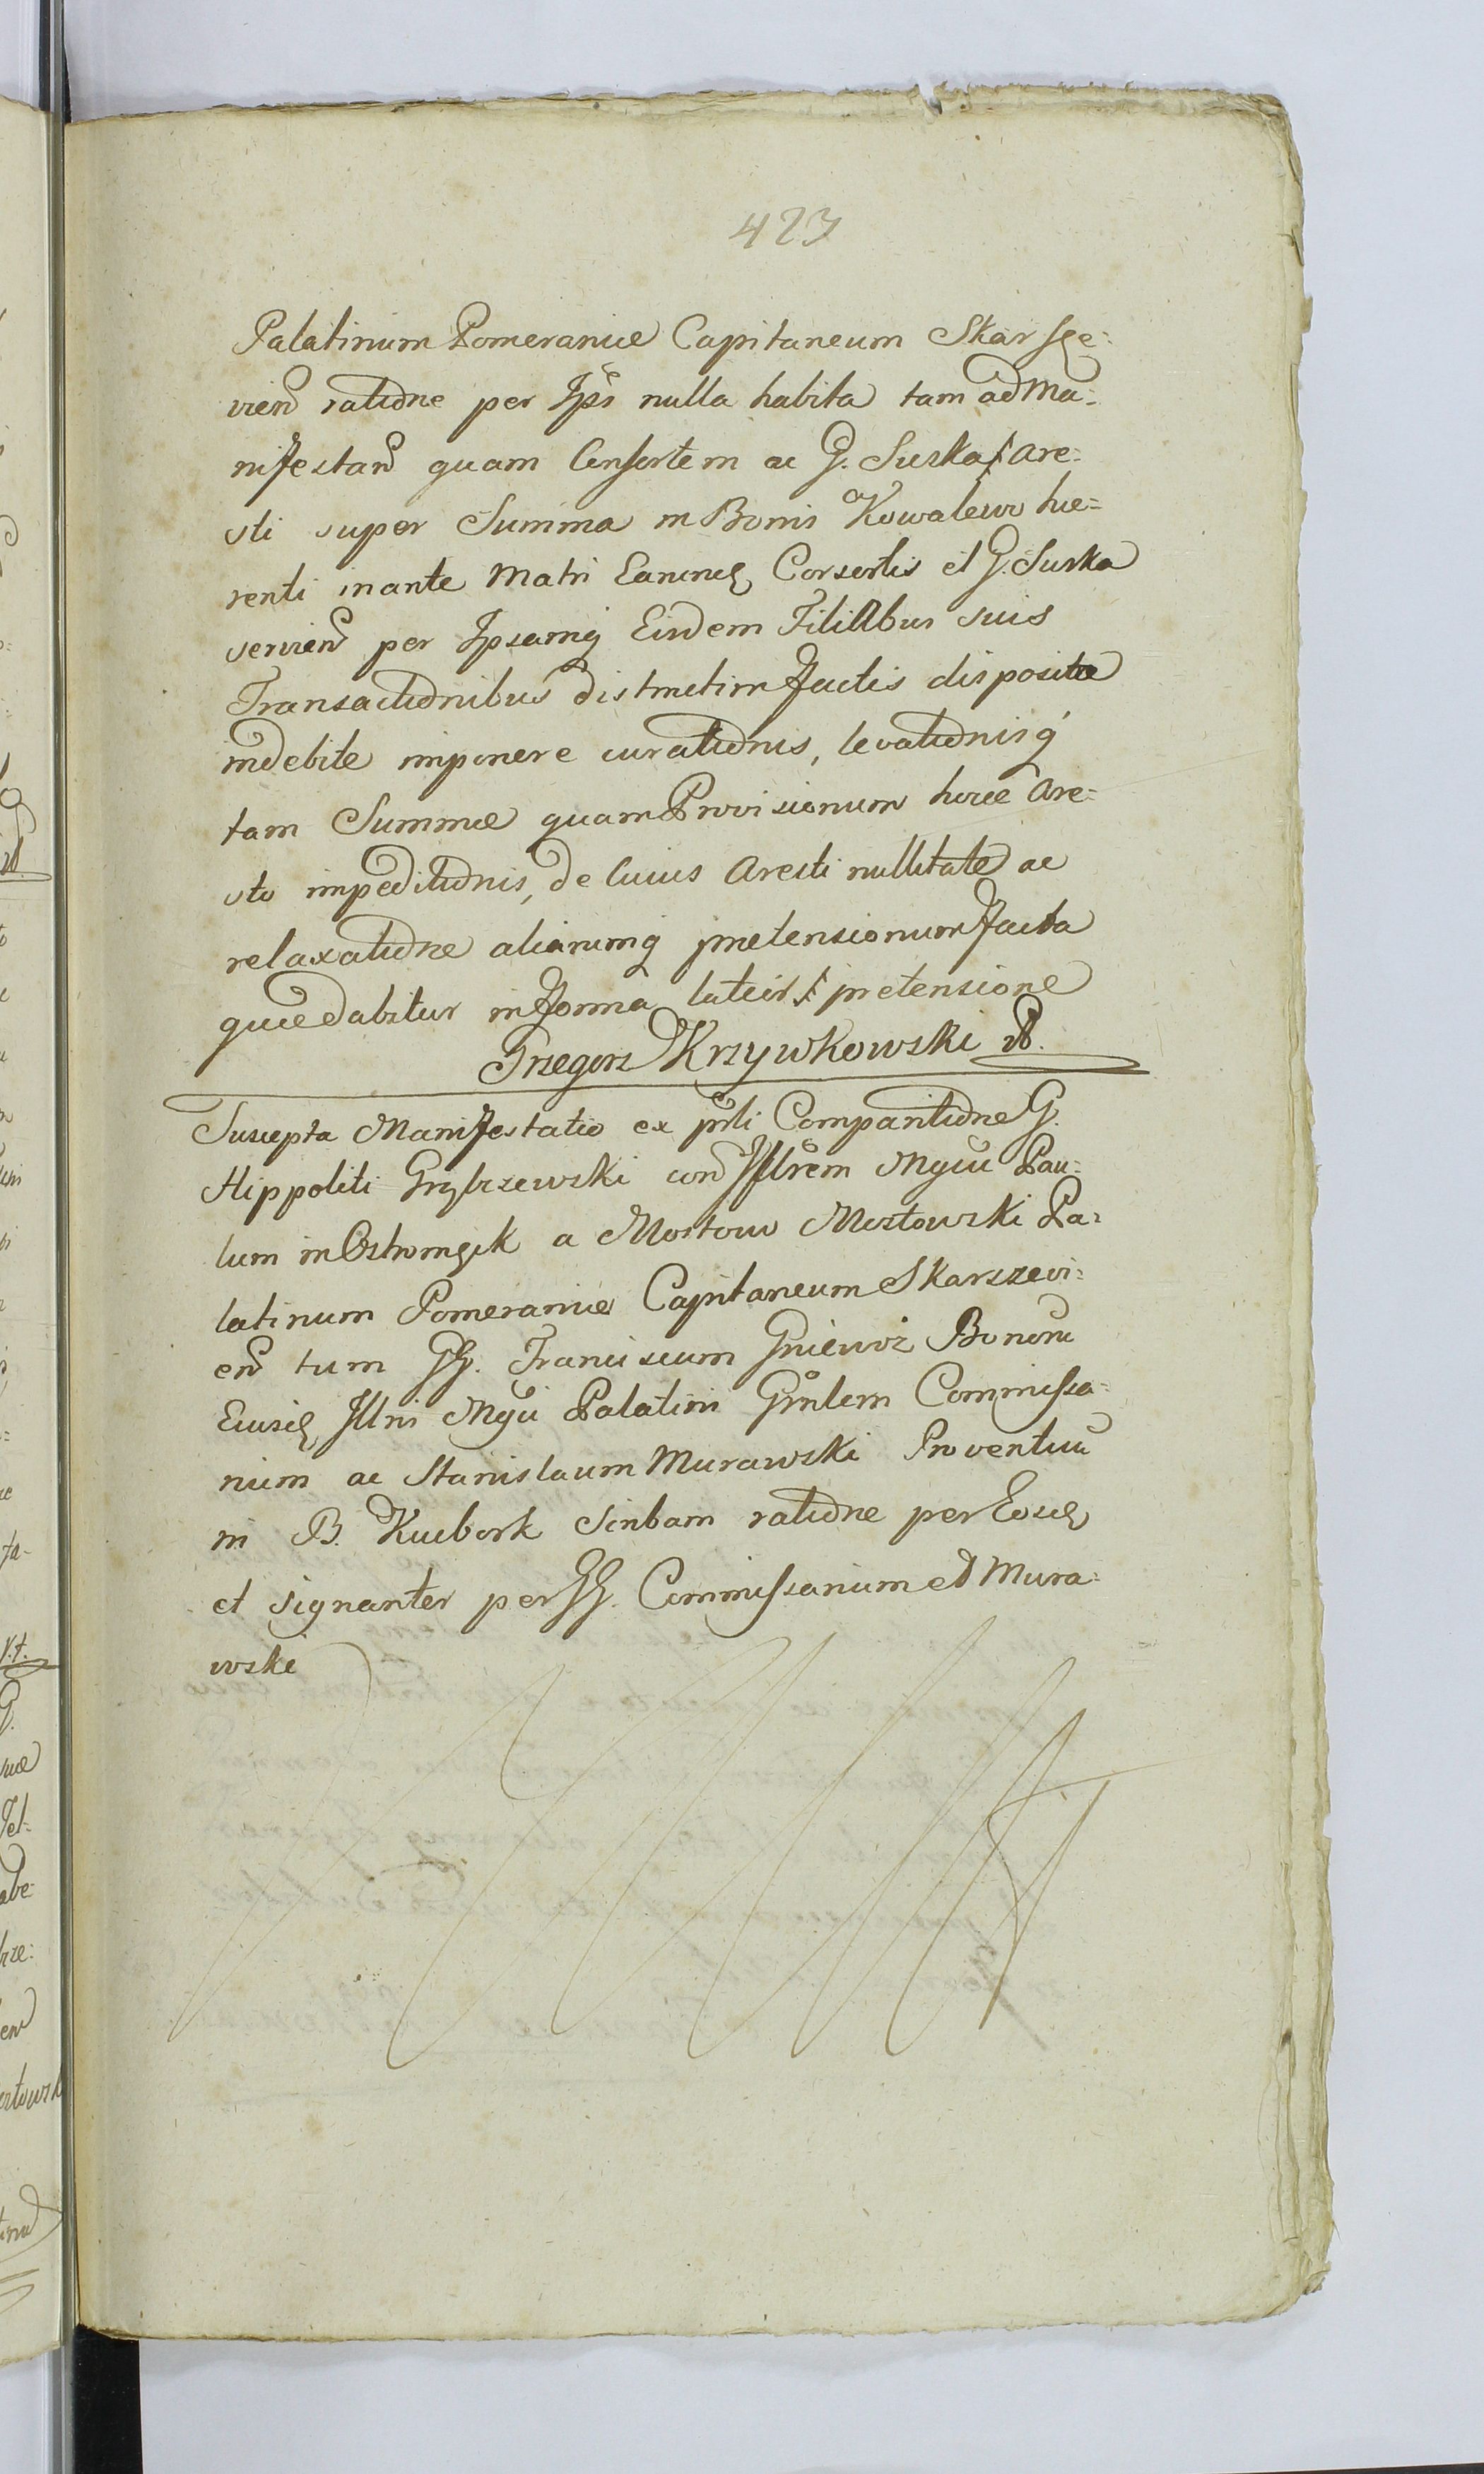 423
Palatinum Pomeraniæ Capitaneum Skarsze=
vien ratione per Ips nulla habita tam ad Ma=
nifestan quam Consortem ac G. Suska Are=
sti super Summa in Bonis Kowalewo hæ=
renti in ante Matri Earund Consortis et G. Suska
servien per Ipsamq Eisdem Filiabus suis
Transactionibus distinctim factis disposita
indebite imponere curationis, levationisq
tam Summæ quam Provisionum hocce Are=
sto impeditionis, de cuius Aresti nullitate ac
relaxatione aliarumq pretensionum facta
quædabitur in forma latiori pretensione
Grzegorz Krzywkowski
Suscepta Manifestatio ex prli Comparitione G.
Hippoliti Grzybzewski con Illrem Mgcu Pau=
lum in Ostromęck a Mostow Mostowski Pa=
latinum Pomeraniæ Capitaneum Skarszevi=
en tum GG. Franciscum Gniewoz Bonoru
Eiusd Illris Mgci Palatini Gnrlem Commissa=
rium ac Stanislaum Murawski Proventuu
in B. Kuczbork Scribam ratione per Eosd
et signanter per GG. Commissarium et Mura=
wski